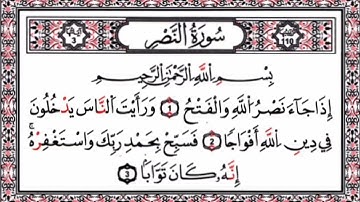 آياتها 3 سُورَةُ النَّصْرِ 110
بِسْمِ اللَّهِ الرَّحْمَٰنِ الرَّحِيمِ
إِذَا جَآءَ نَصْرُ اللَّهِ وَالْفَتْحُ 1 وَرَأَيْتَ النَّاسَ يَدْخُلُونَ
فِي دِينِ اللَّهِ أَفْوَاجًا 2 فَسَبِّحْ بِحَمْدِ رَبِّكَ وَاسْتَغْفِرْهُ ۚ
إِنَّهُۥ كَانَ تَوَّابًا 3